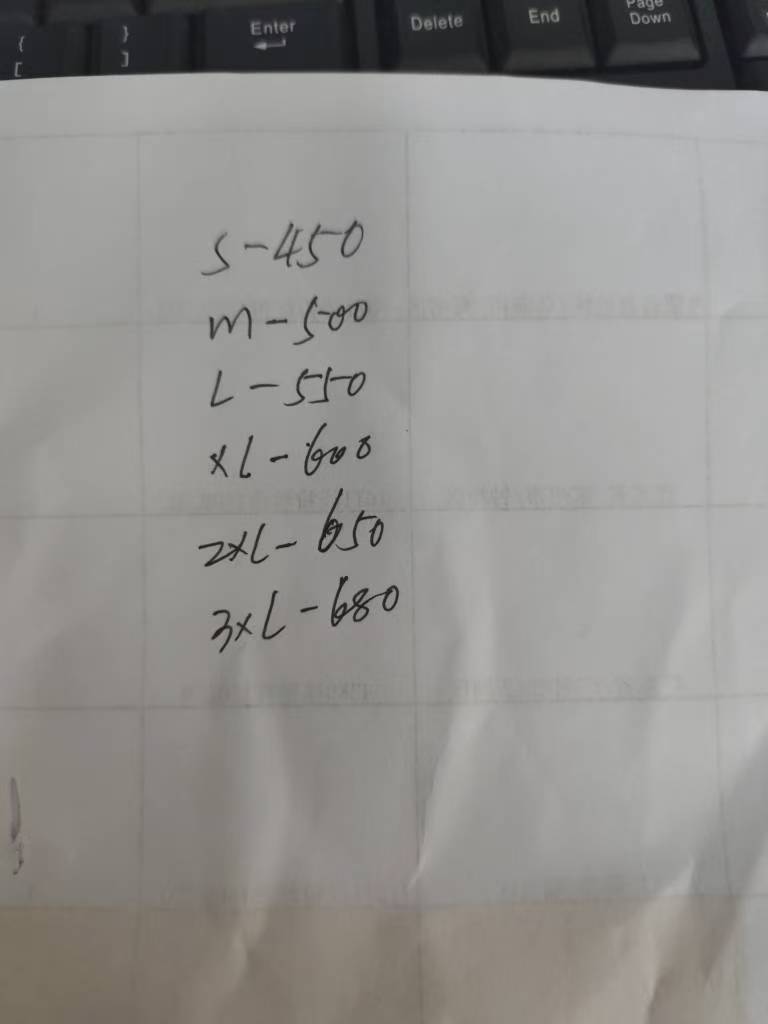 {
[
}
]
Enter
Delete
End
Page
Down
S-450
m-500
L-550
XL-600
2XL-650
3XL-680